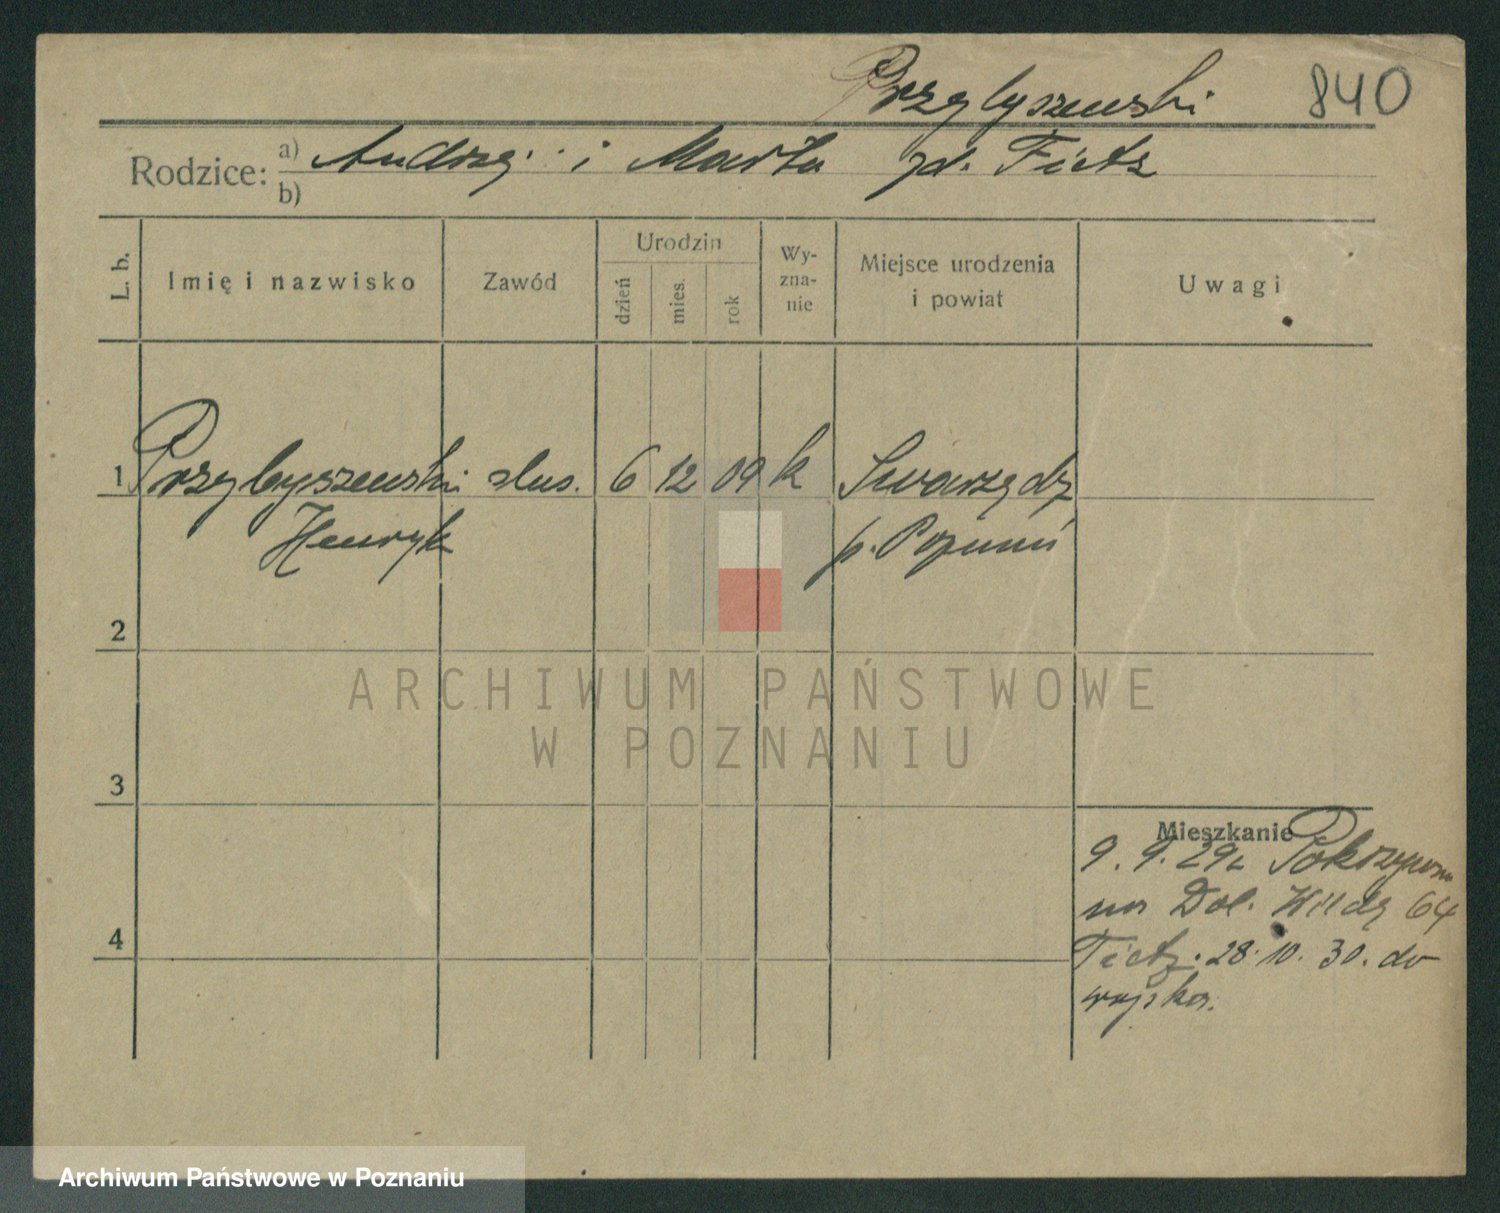 Przybyszewski 840
Rodzice: a) Andrzej i Marta zd. Tietz
b)
L. b.
Imię i nazwisko
Zawód
Urodzin
dzień
mies.
rok
Wy-
zna-
nie
Miejsce urodzenia
i powiat
Uwagi
1 Przybyszewski ślus. 6 12 09 k Swarzędz
Henryk p. Poznań
2
ARCHIWUM PAŃSTWOWE
W POZNANIU
3
Mieszkanie
9. 9. 29
na Dol. Wildę 64
Tietz. 28. 10. 30. do
wojska.
4
Archiwum Państwowe w Poznaniu